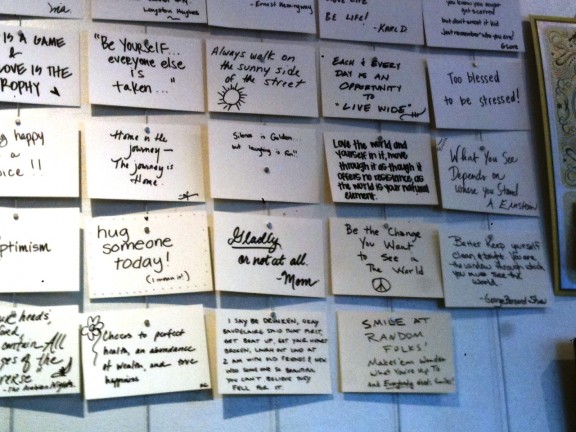 Langston Hughes
- Ernest Hemingway
BE LIFE!
- KARL D
you know you
get scared
but don't want it but
Just remember who you are!
IS A GAME
&
LOVE IS THE
TROPHY
"Be YOURSELF...
everyone else
is
taken..."
Always walk on
the sunny side
of the street
EACH & EVERY
DAY IS AN
OPPORTUNITY
TO
"LIVE WIDE"
Too blessed
to be stressed!
happy
a
ice!!
Home is the
journey —
The journey is
Home.
Silence is Golden...
but laughing is fun!!
Love the world and
yourself in it, move
through it as though it
offers no resistance, as
the world is your natural
element.
"What You See
Depends on
Where you Stand
A. Einstein
optimism
hug
someone
today!
(I mean it!)
Gladly
or not at all.
- Mom
Be the Change
You Want
to See in
The World
Better keep yourself
clean & bright. You are
the window through which
you must see the
world.
- George Bernard Shaw
heeds
contain All
ges of the
verse"
- The Arabian Nights
Cheers to perfect
health, an abundance
of wealth, and true
happiness
I SAY BE DRUNKEN, OKAY
BAUDELAIRE SAID THAT FIRST,
GET BEAT UP, GET YOUR HEART
BROKEN, LAUGH OUT LOUD AT
2 AM WITH OLD FRIENDS & NEW
SOMEONE SO BEAUTIFUL
YOU CAN'T BELIEVE THEY
FELL FOR IT.
SMILE AT
RANDOM
FOLKS!
Makes 'em Wonder
What You're Up To
and Everybody Smiles!